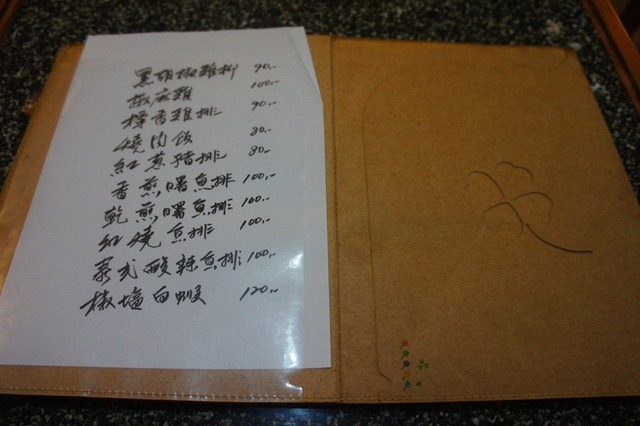 黑胡椒雞柳 90.-
椒麻雞 100.-
檸香雞排 90.-
燒肉飯 80.-
紅蔥豬排 80.-
香煎曙魚排 100.-
乾煎曙魚排 100.-
紅燒魚排 100.-
泰式酸辣魚排 100.-
椒塩白蝦 120.-